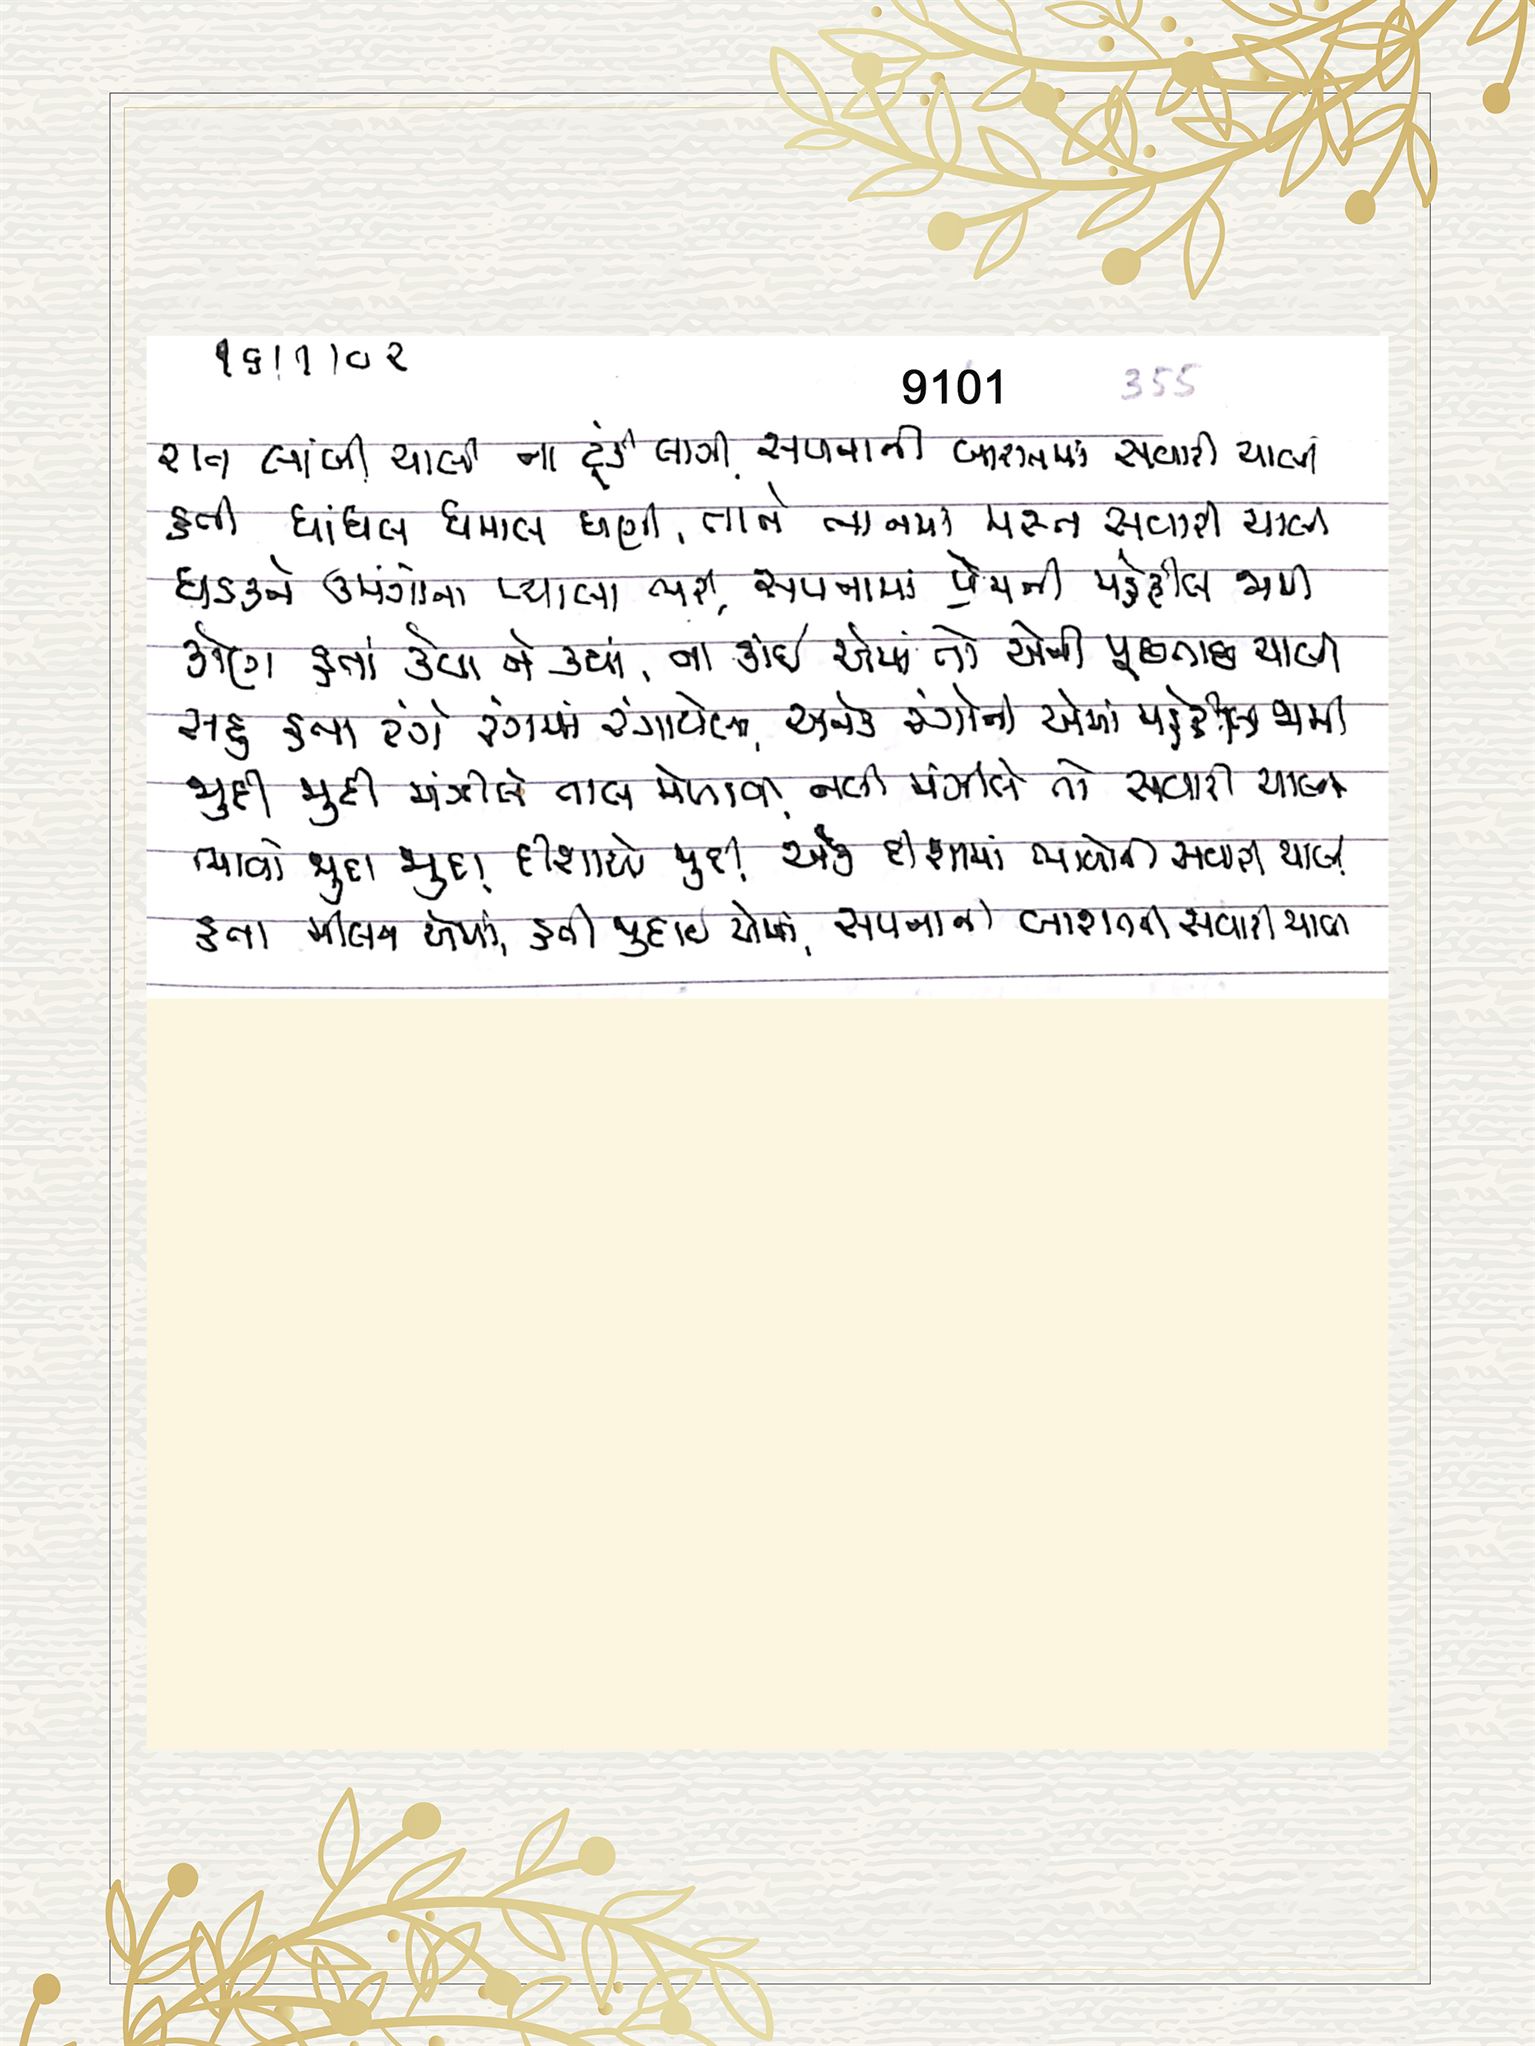 ૧૬।૧।૦૨
9101
355
રાત લાંબી ચાલી ના ટૂંકી લાગી, સપનાની બારાતમાં સવારી ચાલી
હતી ધાંધલ ધમાલ ઘણી, તાને તાનમાં મસ્ત સવારી ચાલી
ધડકને ઉમંગોના પ્યાલા ભરી, સપનામાં પ્રેમની મહેફીલ જામી
કોણ હતાં કેવા ને કયાં, ના કાંઈ એમાં તો એની પૂછતાછ ચાલી
સહુ હતા રંગે રંગમાં રંગાયેલા, અનેક રંગોની એમાં મહેફીલ જામી
જુદી જુદી મંઝીલે તાલ મેળાવી, નવી મંઝીલે તો સવારી ચાલી
ભાવો જુદા જુદા, દીશાઓ જુદી, એક દીશામાં ભાવોની સવારી ચાલી
હતા મીલન એમાં, હતી જુદાઇ એમાં, સપનાની બારાતની સવારી ચાલી